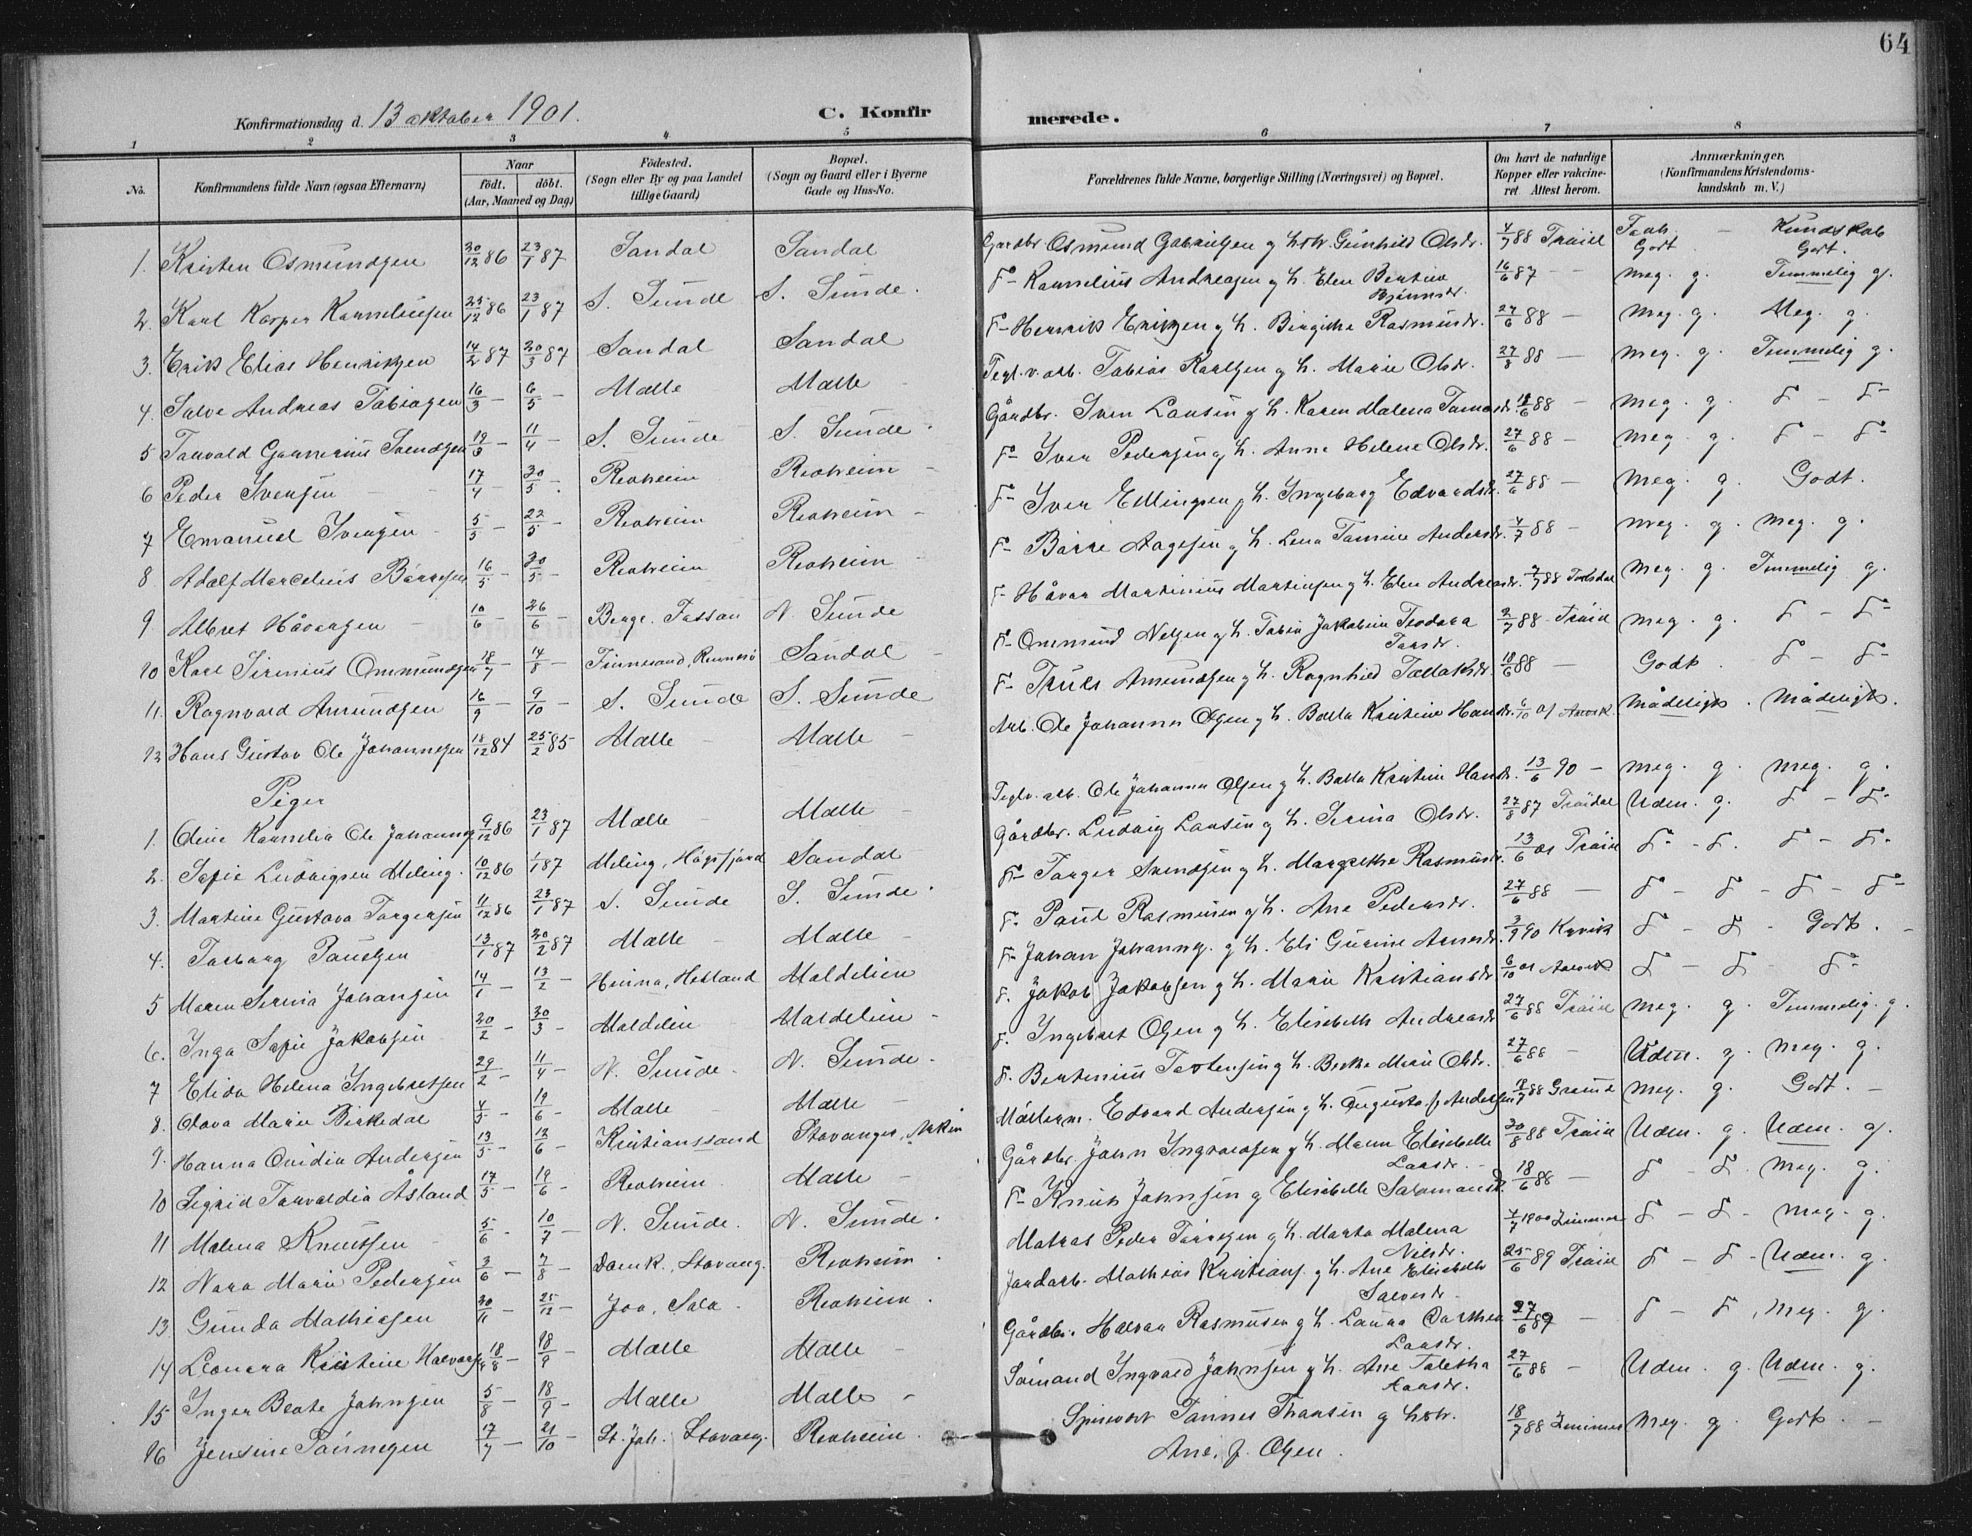 64
Konfirmationsdag d. 13 oktober 1901.
C. Konfir merede.
1 2 3 4 5 6 7 8
No. Konfirmandens fulde Navn (ogsaa Efternavn) Naar født. døbt. (Aar, Maaned og Dag) Födested. (Sogn eller By og paa Landet tillige Gaard) Bopæl. (Sogn og Gaard eller i Byerne Gade og Hus-No. Forældrenes fulde Navne, borgerlige Stilling (Næringsvei) og Bopæl. Om havt de naturlige Kopper eller vakcineret. Attest herom. Anmærkninger. (Konfirmandens Kristendomskundskab m. V.)
1. Kristen Osmundsen 30/12 86 23/1 87 Sandal Sandal Gardbr. Osmund Gabrielsen og Hstr. Gunhild Olsdr. 4/7 88 Kundskab Godt Godt.
2. Karl Kasper Korneliussen 25/12 86 23/1 87 S. Sunde S. Sunde. F- Kornelius Andreasen g H. Elen Bertine 16/6 87 - - Meg. g. Temmelig g.
3. Erik Elias Henriksen 14/2 87 20/3 87 Sandal Sandal F- Henrik Eriksen g H. Birgithe Rasmusdr. 27/6 88 - Meg. g. Meg. g.
4. Salve Andreas Tobiasen 16/3 - 6/5 - Malle Malle - Tegl.v.arb. Tobias Karlsen g H. Marie Olsdr. 27/8 88 - Meg. g. Temmelig g.
5 Torvald Svendsen 19/3 - 11/4 - S. Sunde S. Sunde. Gårdbr. Sven Larsen g H. Karen Malena 18/6 88 - Meg. g. F - F-
6 Peder Iversen - 17/4 - 30/5 - Revheim Revheim - F- Iver Pedersen g H. Anne Helene Olsdr. 27/6 88 - Meg. g. F - F-
7 Emanuel Iversen - 5/5 - 22/5 - Revheim Revheim - F- Iver Ellingsen g H. Ingeborg Edvardsdr. 27/6 88 - Meg. g. Godt.
8. Adolf Marcelius Børresen 16/5 - 30/5 - Revheim Revheim - F- Børre Aagesen g H. Lena Tomine Andersdr. 4/7 88 - Meg. g. Meg. g.
9 Albret Håvarsen - 10/6 - 26/6 - Berge. Fossan N. Sunde F- Håvar Martinius Mortensen g H. Elen Andreasdr. 7/7 88 Meg. g. Temmelig g.
10 Karl Sirenius Ommundsen 18/7 - 14/8 - Finnesand, Rennesø Sandal - F- Ommund Nelsen g H. Tobia Jakobine Teodora 2/7 88 - Meg. g. F - F-
11. Ragnvald Amundsen 16/9 - 9/10 - S. Sunde S. Sunde F- Truls Amundsen g H. Ragnhild Tollaksdr. 18/6 88 - Godt. F - F-
12 Hans Gustav Ole Johannesen 18/12 84 25/2 85 Malle Malle - Arb. Ole Johannes Olsen g H. Bolla Kristine Hansdr. 6/10 01 Mådeligt. Mådeligt.
Piger
1. Oline Kornelia Ole Johannes 9/12 86 23/1 87 Malle Malle - Teglv. arb. Ole Johannes Olsen g H. Bolla Kristine Hansdr. 13/6 90 - Meg. g. Meg. g.
2. Sofie Ludvigsen Meling. 10/12 86 1/1 87 Meling, Høgsfjord Sandal Gårdbr. Ludvig Larsen g H. Serina Olsdr. 27/8 87 Uden. g. F - F-
3. Martine Gustava Torgersen 11/12 86 23/1 87 S. Sunde S. Sunde. F- Torger Svendsen g H. Margrethe Rasmusdr. 13/6 01 F - F. F - F-
4. Torborg Paulsen 13/1 87 20/2 87 Malle Malle - F- Paul Rasmusen g H. Ane Pedersdr. 27/6 88 - F - F - F - F-
5 Maren Serina Johansen 14/1 - 13/2 - Hinna, Hetland Maldelien F- Johan Johannes. g H. Eli Gurine Arnesdr. 3/9 90 F - F - Godt. -
6. Inga Sofie Jakobsen 20/2 - 20/3 - Maldelien Maldelien - F. Jakob Jakobsen g H. Marie Kristiansdr. 6/10 01 F - F - F-
7 Elida Helena Ingebretsen 29/2 - 11/4 - N. Sunde. N. Sunde. F. Ingebret Olsen g H. Elisabeth Andreasdr 27/6 88 Meg. g. Temmelig. g.
8. Olava Marie Birkedal 4/5 - 19/6 - Malle Malle - F. Bertinius Torstensen g H. Berthe Marie Olsdr. 27/6 88 - Uden. g. Meg. g.
9. Hanna Ovidia Andersen 13/5 - 12/6 - Kristianssand Stavanger, Edvard Andersen g H. Augusta f. Andersen 88 Meg. g. Godt. -
10 Sigrid Torvaldia Åsland 17/5 - 19/6 - Revheim Malle - Gårdbr. John Ingvaldsen g H. Maren Elisabeth Larsdr. 30/8 88 Uden. g. Uden. g.
11 Malena Knutsen 5/6 - 10/7 - N. Sunde. N. Sunde. F- Knut Johnsen g Elisabeth Salamonsdr. 18/6 88 - F - F. Meg. g.
12 Nora Marie Pedersen 3/6 - 7/8 - Domk. Stavang. Revheim Matros Peder Torresen g H. Marta Malena Nilsdr. 4/7 1900 F - F - Meg. g.
13. Gunda Mathiasen 30/11 - 25/12 - Joa, Sola. Revheim. Jordarb. Mathias Kristians. g H. Ane Elisabeth 25/6 89 F - F - Uden. g.
14 Leonora Kristine Halvors 18/8 - 18/9 - Malle Malle - Gårdbr. Halvor Rasmusen g H. Laura Dorthea Larsdr. 27/6 89 - F - F, Meg. g.
15 Inger Beate Johnsen 5/8 - 18/9 - Malle Malle - Sømand Ingvald Johnsen g H. Ane Taletha 27/6 88 - Uden. g. Uden. g.
16 Jensine Tønnesen 17/7 - 21/10 - St. Joh. Stavang. Revheim. Tønnes g Hstr. Ane, f. Olsen. 18/7 88 Meg. g. Godt. -